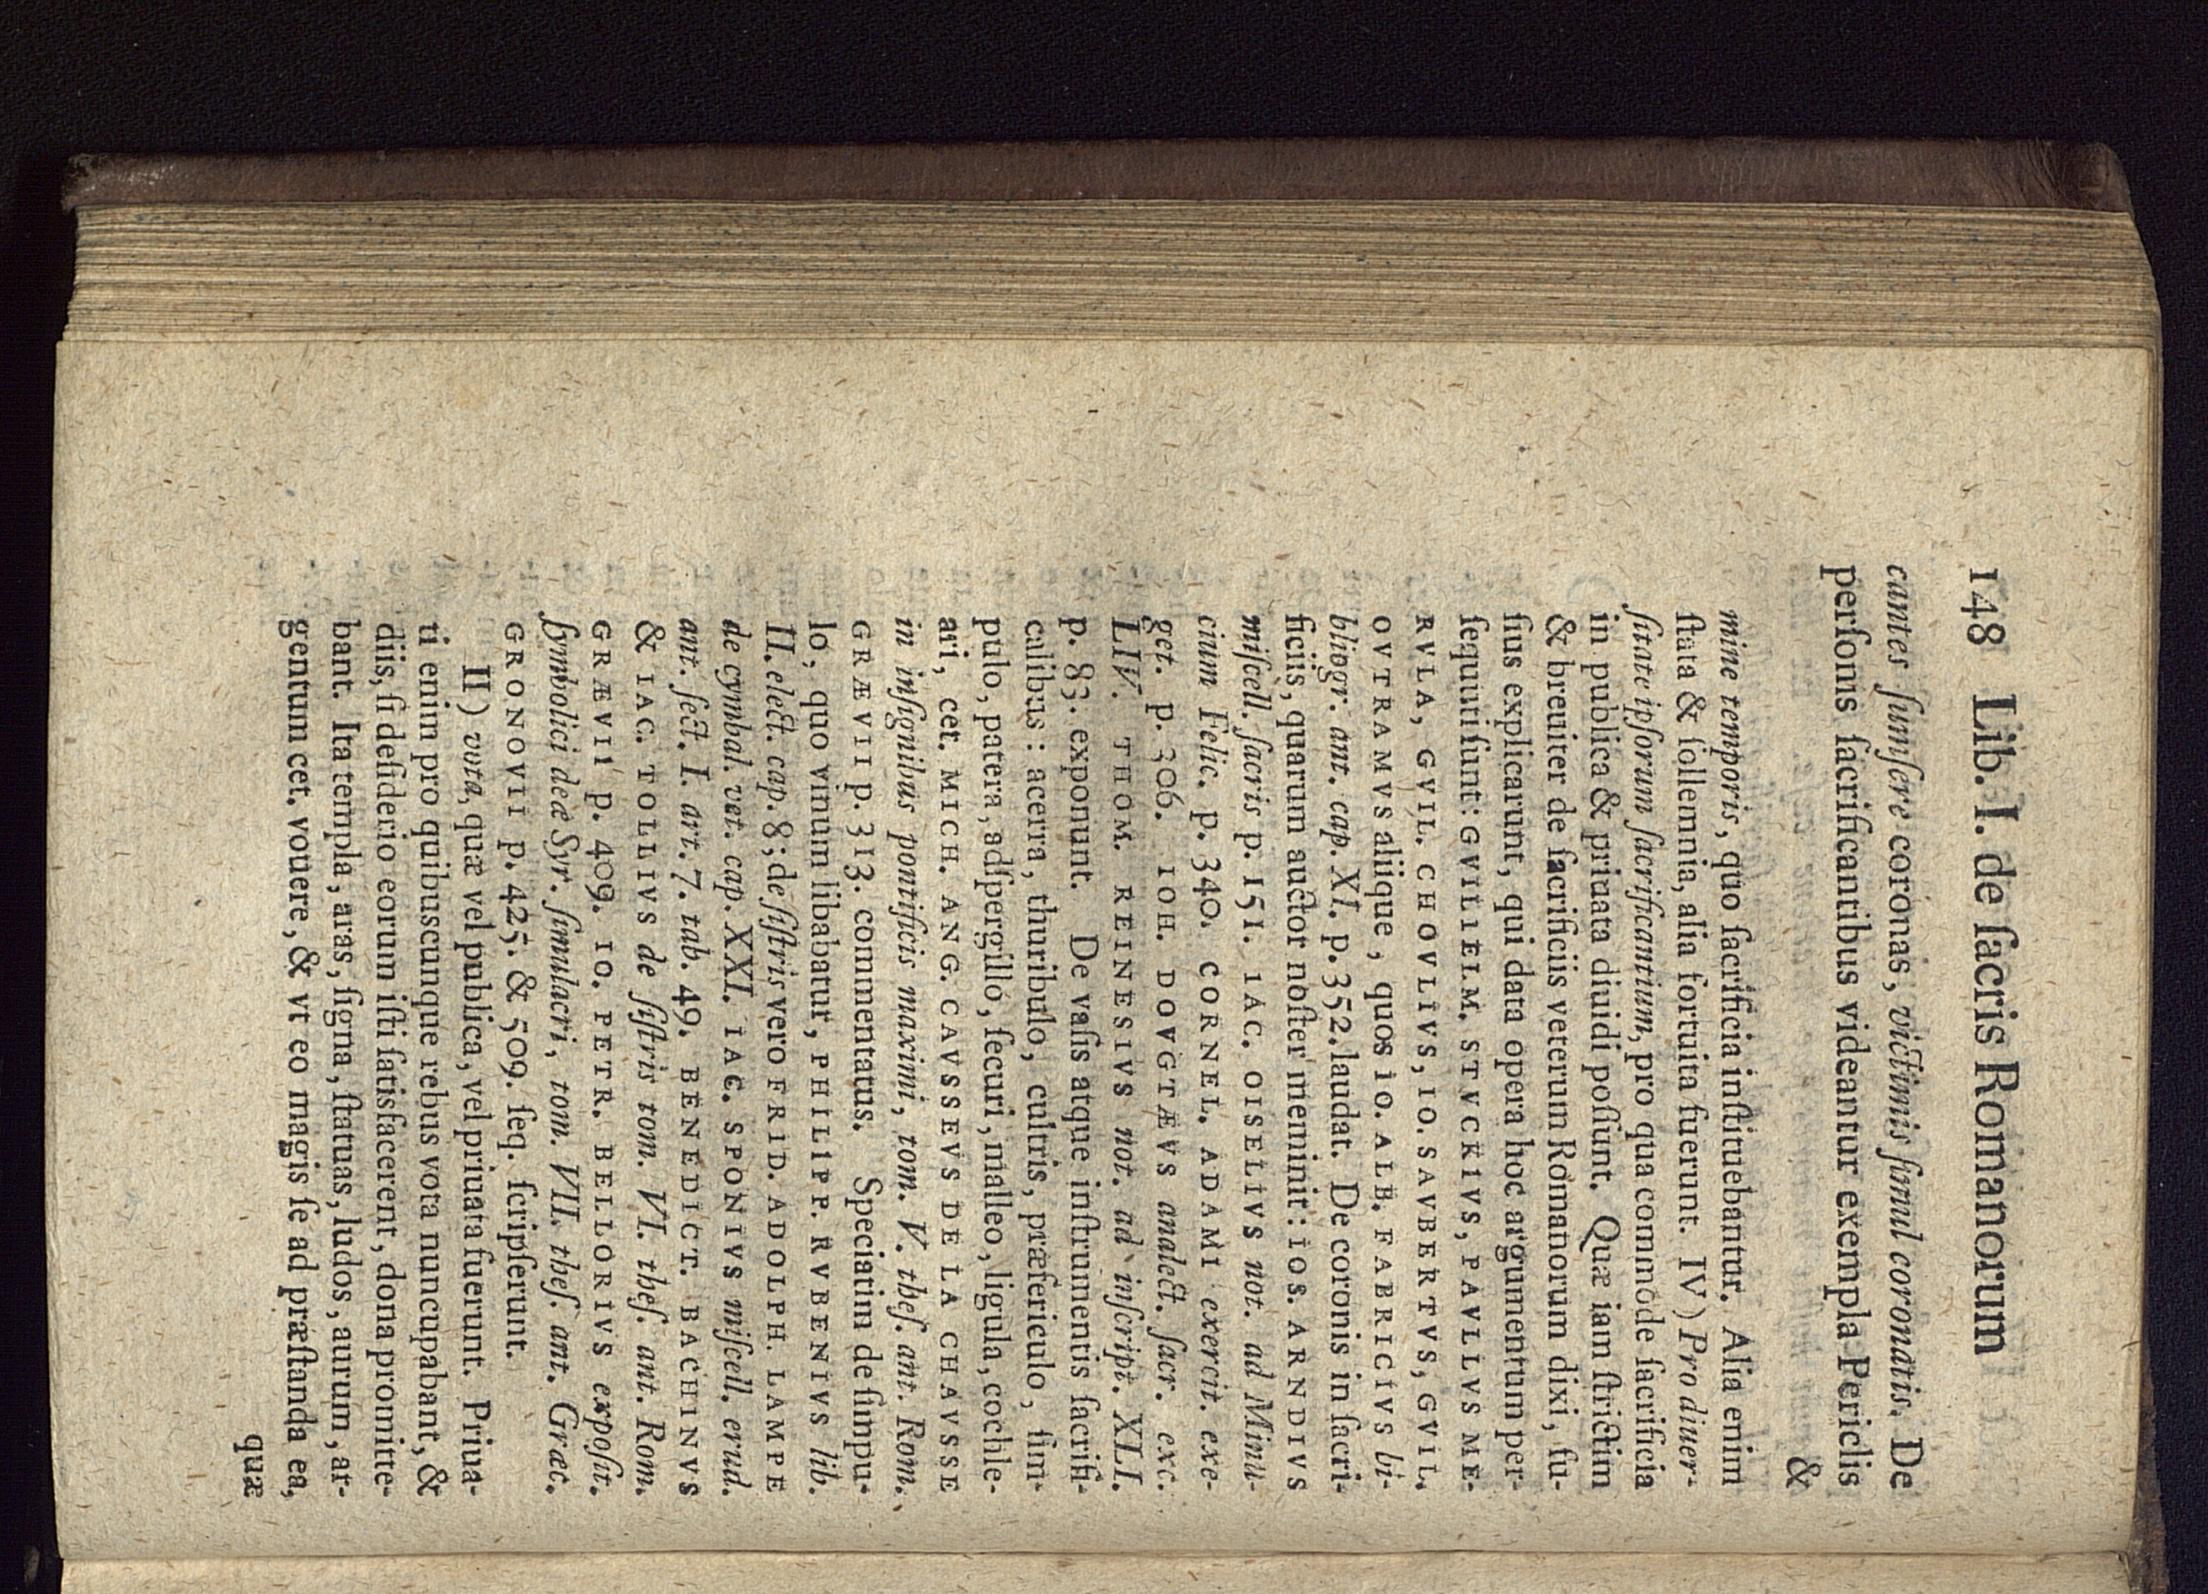 148 Lib. I. de ſacris Romanorum
cantes ſumſere coronas, victimis ſimul coronatis. De
perſonis ſacrificantibus videantur exempla Periclis
&
mine temporis, quo ſacrificia inſtituebantur. Alia enim
ſtata & ſollemnia, alia fortuita fuerunt. IV) Pro diuer-
ſitate ipſorum ſacrificantium, pro qua commode ſacrificia
in publica & priuata diuidi poſſunt. Quæ iam ſtrictim
& breuiter de ſacrificiis veterum Romanorum dixi, fu-
ſius explicarunt, qui data opera hoc argumentum per-
ſequuti ſunt: GVILIELM. STVCKIVS, PAVLLVS ME-
RVLA, GVIL. CHOVLIVS, IO. SAVBERTVS, GVIL.
OVTRAMVS aliique, quos IO. ALB. FABRICIVS bi-
bliogr. ant. cap. XI. p. 352. laudat. De coronis in ſacri-
ficiis, quarum auctor noſter meminit: IOS. ARNDIVS
miſcell. ſacris p. 151. IAC. OISELIVS not. ad Minu-
cium Felic. p. 340. CORNEL. ADAMI exercit. exe-
get. p. 306. IOH. DOVGTÆVS analect. ſacr. exc.
LIV. THOM. REINESIVS not. ad inſcript. XLI.
p. 83. exponunt. De vaſis atque inſtrumentis ſacrifi-
calibus: acerra, thuribulo, cultris, præfericulo, ſim-
pulo, patera, adſpergillo, ſecuri, malleo, ligula, cochle-
ari, cet. MICH. ANG. CAVSSEVS DE LA CHAVSSE
in inſignibus pontificis maximi, tom. V. theſ. ant. Rom.
GRÆVII p. 313. commentatus. Speciatim de ſimpu-
lo, quo vinum libabatur, PHILIPP. RVBENIVS lib.
II. elect. cap. 8; de ſiſtris vero FRID. ADOLPH. LAMPE
de cymbal. vet. cap. XXI. IAC. SPONIVS miſcell. erud.
ant. ſect. I. art. 7. tab. 49. BENEDICT. BACHINVS
& IAC. TOLLIVS de ſiſtris tom. VI. theſ. ant. Rom.
GRÆVII p. 409. IO. PETR. BELLORIVS expoſit.
ſymbolici deæ Syr. ſimulacri, tom. VII. theſ. ant. Græc.
GRONOVII p. 425. & 509. ſeq. ſcripſerunt.
II) vota, quæ vel publica, vel priuata fuerunt. Priua-
ti enim pro quibuscunque rebus vota nuncupabant, &
diis, ſi deſiderio eorum iſti ſatisfacerent, dona promitte-
bant. Ita templa, aras, ſigna, ſtatuas, ludos, aurum, ar-
gentum cet. vouere, & vt eo magis ſe ad præſtanda ea,
quæ